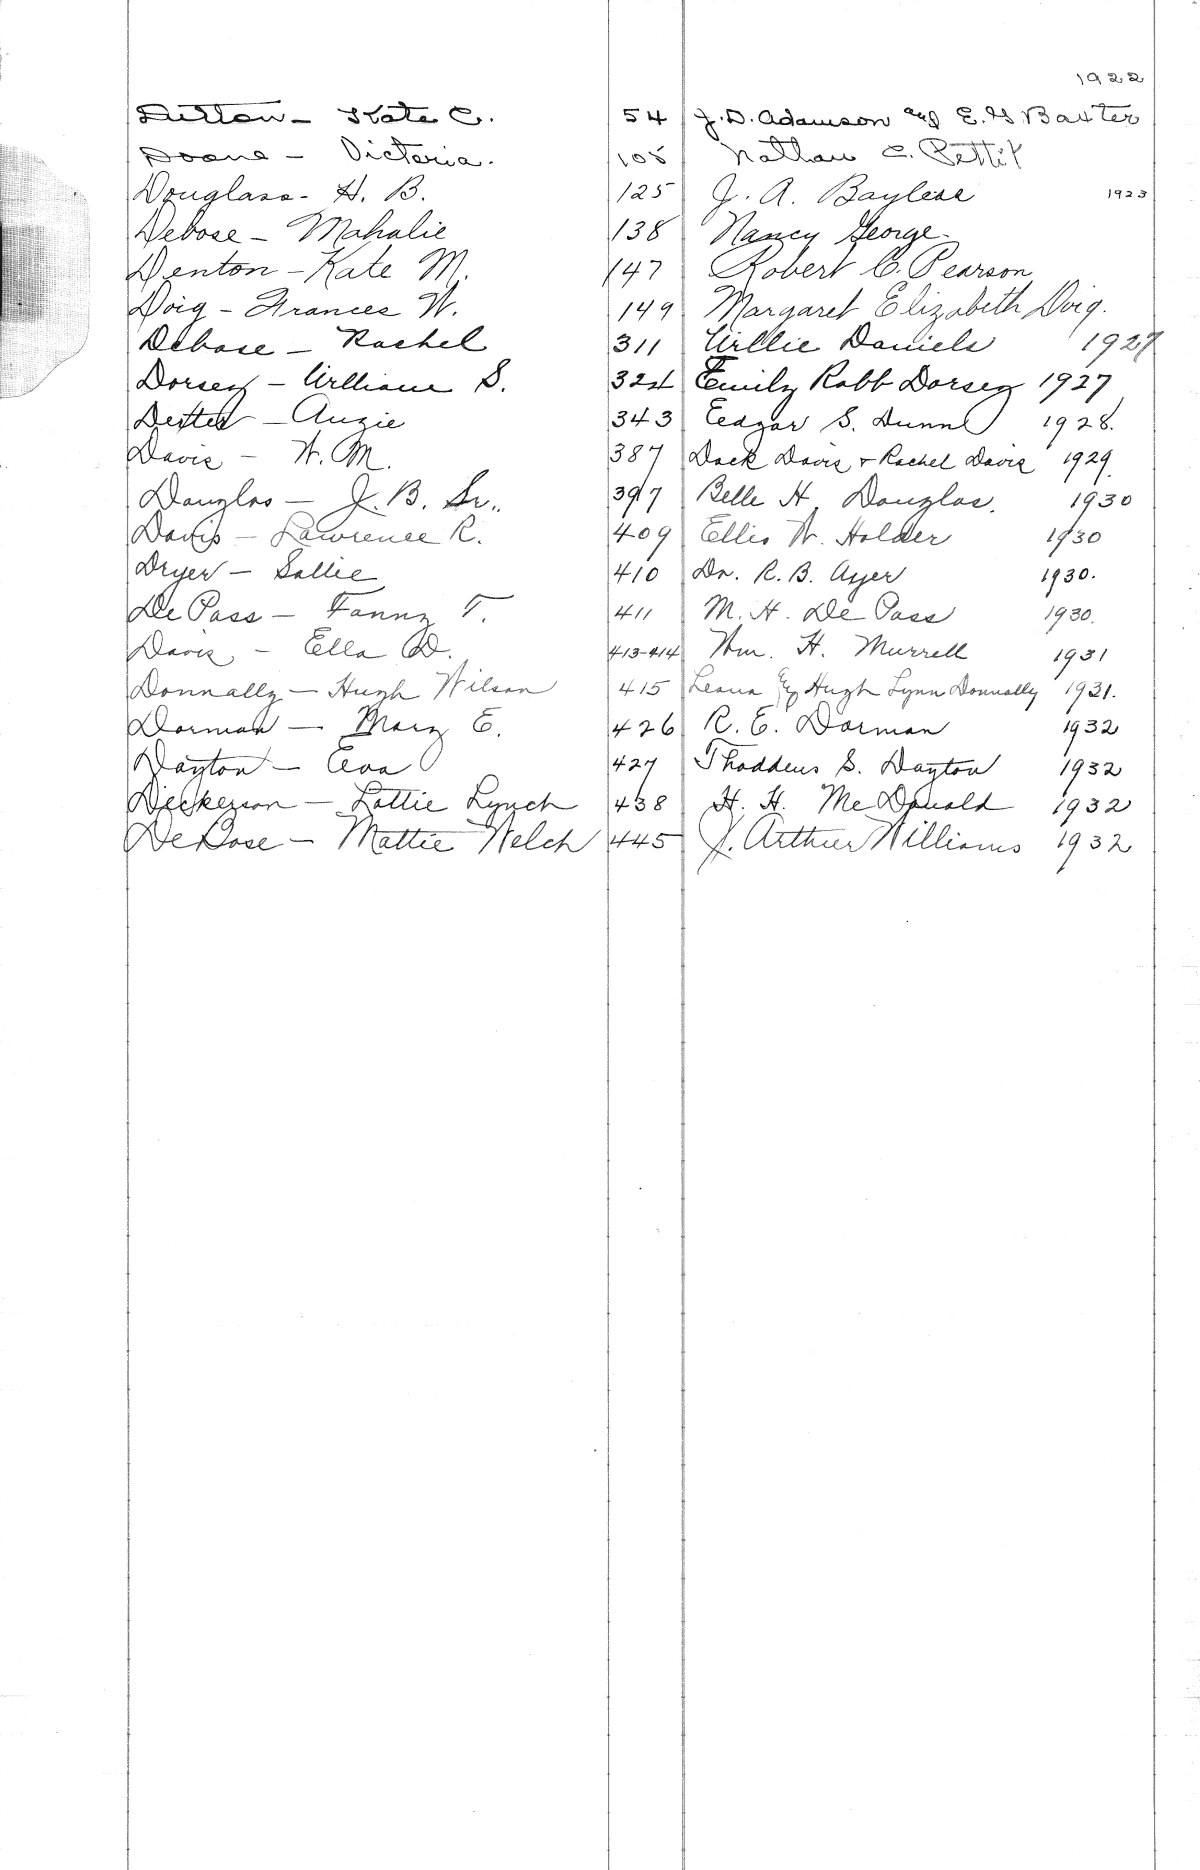 1922
Dutton - Kate C. 54 J. D. Adamson and E. G Baxter
Doane - Victoria. 108 Nathan C. Pettit
Douglass - H. B. 125 J. A. Bayless 1923
Debose - Mahalie 138 Nancy George.
Denton - Kate M. 147 Robert C. Pearson
Doig - Frances W. 149 Margaret Elizabeth Doig.
Debose - Rachel 311 Willie Daniels 1927
Dorsey - William S. 324 Emily Robb Dorsey 1927
Dexter - Auzie 343 Eedgar S. Dunn 1928.
Davis - W. M. 387 Dock Davis + Rachel Davis 1929.
Douglas - J. B. Sr. 397 Belle H. Douglas. 1930
Davis - Lawrence R. 409 Ellis W. Holder 1930
Dryer - Sallie 410 Dr. R. B. Ayer 1930.
De Pass - Fanny T. 411 M. H. De Pass 1930.
Davis - Ella D. 413-414 Wm. H. Murrell 1931
Donnally - Hugh Wilson 415 Leana & Hugh Lynn Donnally 1931.
Dorman - Mary E. 426 R. E. Dorman 1932
Dayton - Eva 427 Thaddeus S. Dayton 1932
Dickerson - Lottie Lynch 438 H. H. McDonald 1932
DeBose - Mattie Welch 445 J. Arthur Williams 1932